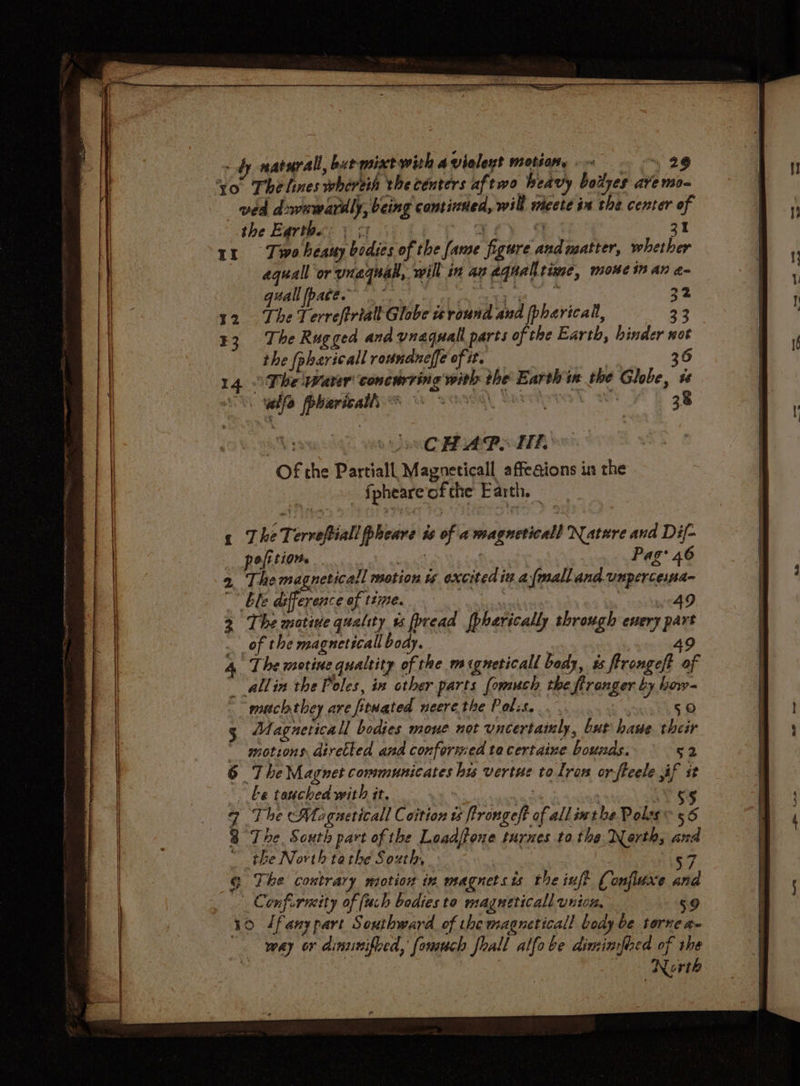 ly naturall, but mixt with a violent motion, 29
10 The lines wherein the centers of two heavy bodyes are mo-
ved downwardly, being continued, will meete in the center of
the Earth. 31
11 Two heavy bodies of the same figure and matter, whether
æquall or vnæquall, will in an æquall time, moue in an æ-
quall space. 32
12 The Terrestriall Globe is round and sphæricall, 33
13 The Rugged and vnæquall parts of the Earth, hinder not
the sphæricall roundnesse of it. 36
14 The Water concurring with the Earth in the Globe, is
also sphæricall. 38
CHAP. III.
Of the Partiall Magneticall affections in the
spheare of the Earth.
1 The Terrestiall spheare is of a magneticall Nature and Dis-
position. Pag. 46
2 The magneticall motion is excited in a small and vnperceiua-
ble difference of time. 49
3 The motiue quality is spread sphærically through euery part
of the magneticall body. 49
4 The motiue qualtity of the magneticall body, is strongest of
all in the Poles, in other parts somuch the stronger by how-
much they are situated neere the Poles. 50
5 Magneticall bodies moue not vncertainly, but haue their
motions directed and conformed to certaine bounds. 52
6 The Magnet communicates his vertue to Iron or steele if it
be touched with it. 55
7 The Magneticall Coition is strongest of all in the Poles 56
8 The South part of the Loadstone turnes to the North, and
the North to the South, 57
9 The contrary motion in magnets is the iust Confluxe and
Conformity of such bodies to magneticall vnion. 59
10 If any part Southward of the magneticall body be torne a-
way or diminished, somuch shall also be diminished of the
North